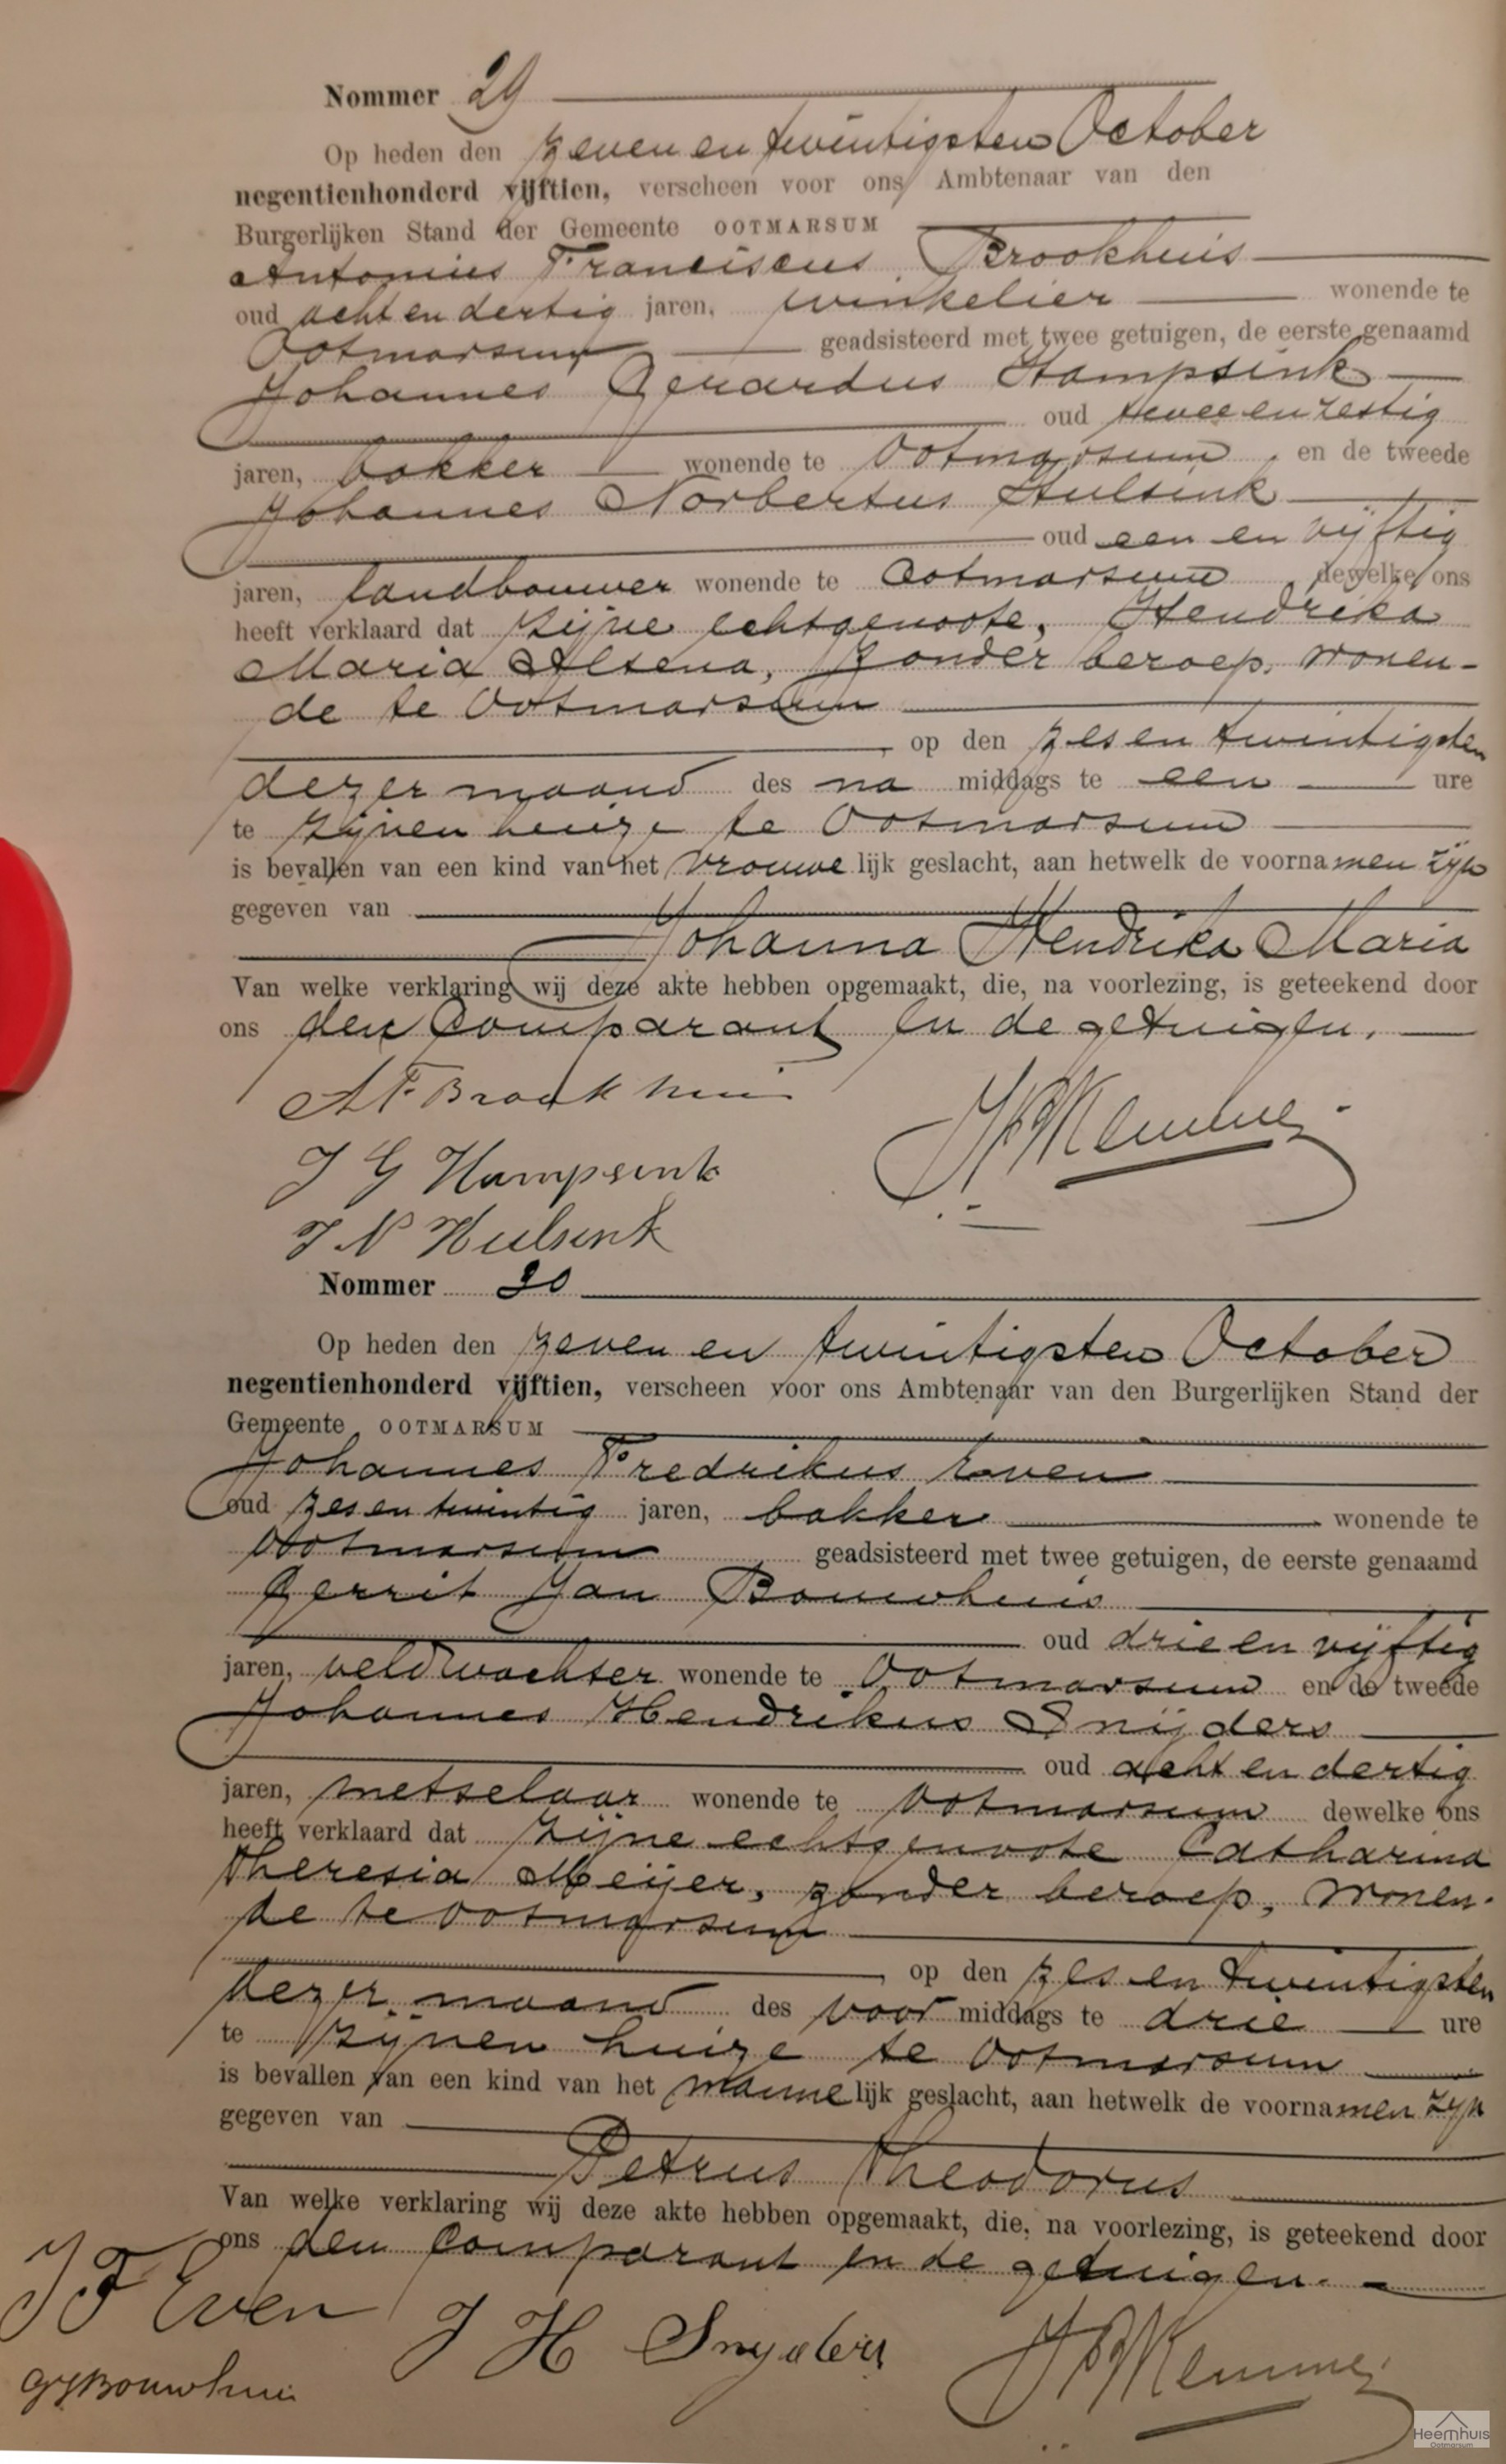 Nommer 29
Op heden den zeven en twintigsten October
negentienhonderd vijftien, verscheen voor ons Ambtenaar van den
Burgerlijken Stand der Gemeente OOTMARSUM
Antonius Franciscus Brookhuis
oud acht en dertig jaren, winkelier wonende te
Ootmarsum geadsisteerd met twee getuigen, de eerste genaamd
Johannes Gerardus Hampsink
oud twee en zestig
jaren, bakker wonende te Ootmarsum, en de tweede
Johannes Norbertus Hulsink
oud een en vijftig
jaren, landbouwer wonende te Ootmarsum, dewelke ons
heeft verklaard dat zijne echtgenoote, Hendrika
Maria Alsena, zonder beroep, wonen-
de te Ootmarsum
, op den zes en twintigsten
dezer maand des na middags te een ure
te zijnen huize te Ootmarsum
is bevallen van een kind van het vrouwelijk geslacht, aan hetwelk de voornamen zijn
gegeven van
Johanna Hendrika Maria
Van welke verklaring wij deze akte hebben opgemaakt, die, na voorlezing, is geteekend door
ons den Comparant en de getuigen.
A F Brookhuis
J G Hampsink
J N Hulsink
Nommer 30
Op heden den zeven en twintigsten October
negentienhonderd vijftien, verscheen voor ons Ambtenaar van den Burgerlijken Stand der
Gemeente OOTMARSUM
Johannes Fredrikus Even
oud zes en twintig jaren, bakker wonende te
Ootmarsum geadsisteerd met twee getuigen, de eerste genaamd
Gerrit Jan Bouwhuis
oud drie en vijftig
jaren, veldwachter wonende te Ootmarsum en de tweede
Johannes Hendrikus Snijders
oud acht en dertig
jaren, metselaar wonende te Ootmarsum dewelke ons
heeft verklaard dat zijne echtgenoote Catharina
Theresia Meijer, zonder beroep, wonen-
de te Ootmarsum
, op den zes en twintigsten
dezer maand des voor middags te drie ure
te zijnen huize te Ootmarsum
is bevallen van een kind van het mannelijk geslacht, aan hetwelk de voornamen zijn
gegeven van
Petrus Theodorus
Van welke verklaring wij deze akte hebben opgemaakt, die, na voorlezing, is geteekend door
ons den Comparant en de getuigen.
J F Even
J H Snyders
GJ Bouwhuis
Heemhuis
Ootmarsum